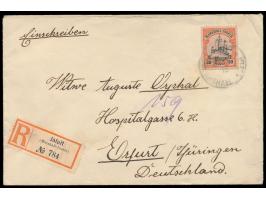 Einschreiben
Witwe Auguste Orphal
159
Hospitalgasse 6. H.
Erfurt / Thüringen
Deutschland.
R
Jaluit
(Marshall-Inseln)
№ 784